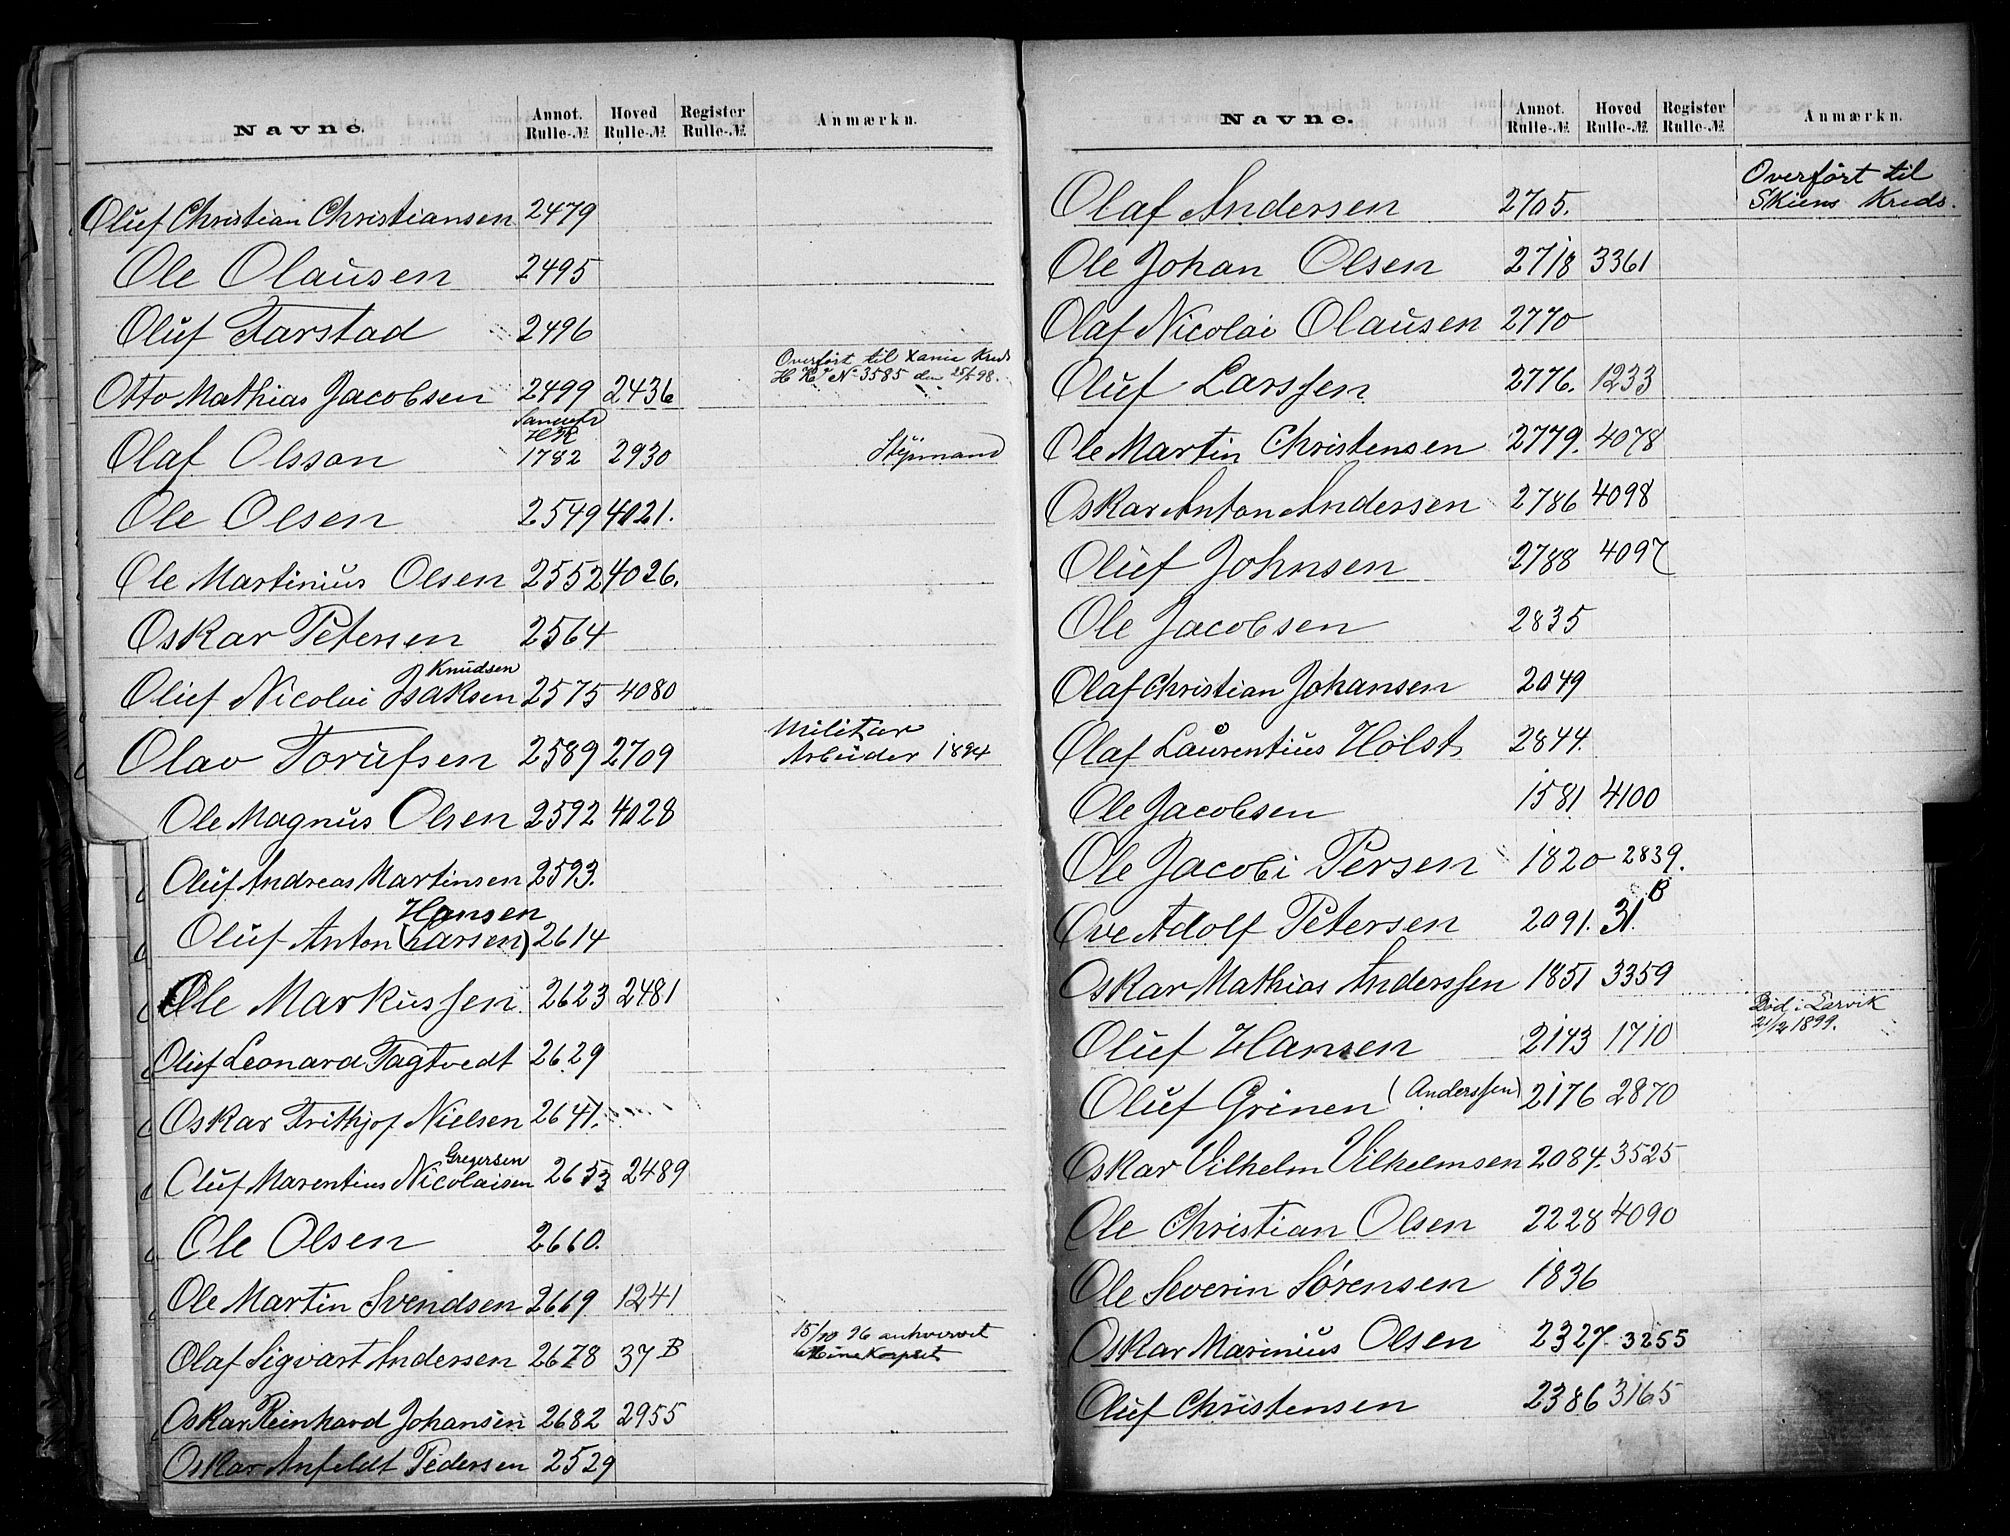 Navne. Annot. Rulle-№ Hoved Rulle-№ Register Rulle-№ Anmærkn.
Oluf Christian Christiansen 2479
Ole Olausen 2495
Oluf Farstad 2496
Overført til Xania Kreds
H R N° 3585 den 25/5 98.
Otto Mathias Jacobsen 2499 2436
HR
Olaf Olsson 1782 2930 Stýrmand
Ole Olsen 2549 4021.
Ole Martinius Olsen 2552 4026.
Oskar Petersen 2564
Knudsen
Oluf Nicolai Isaksen 2575 4080
Militær
Olav Torufsen 2589 2709 Arbeider 1894
Ole Magnus Olsen 2592 4028
Oluf Andreas Martinsen 2593.
Hansen
Oluf Anton (Larsen) 2614
Ole Markussen. 2623 2481
Oluf Leonard Tagtvedt 2629
Oskar Frithjof Nielsen 2641.
Gregersen
Oluf Marentius Nicolaisen 2653 2489
Ole Olsen 2660.
Ole Martin Svendsen 2669 1241
15/10 96 anhvervet
Olaf Sigvart Andersen 2678 37 B Minekorpset
Oskar Reinhard Johansen 2682 2955
Oskar Anfeldt Pedersen 2529
Navne. Annot. Rulle-№ Hoved Rulle-№ Register Rulle-№ Anmærkn.
Overført til
Olaf Andersen 2705. Skiens Kreds.
Ole Johan Olsen 2718 3361
Olaf Nicolai Olausen 2770
Oluf Larssen 2776. 1233
Ole Martin Christensen 2779. 4078
Oskar Anton Andersen 2786 4098
Oluf Johnsen 2788 4097
Ole Jacobsen 2835
Olaf Christian Johansen 2049
Olaf Laurentius Holst 2844.
Ole Jacobsen 1581 4100
Ole Jacobi Persen 1820 2839.
Ove Adolf Petersen 2091. 31. B
Oskar Mathias Anderssen 1851 3359
Død i Larvik
21/12 1899.
Oluf Hansen 2143 1710
Oluf Grinen (Anderssen) 2176 2870
Oskar Vilhelm Vilhelmsen 2084. 3525
Ole Christian Olsen 2228 4090
Ole Severin Sørensen 1836
Oskar Marinius Olsen 2327. 3255
Oluf Christensen 2386 3165